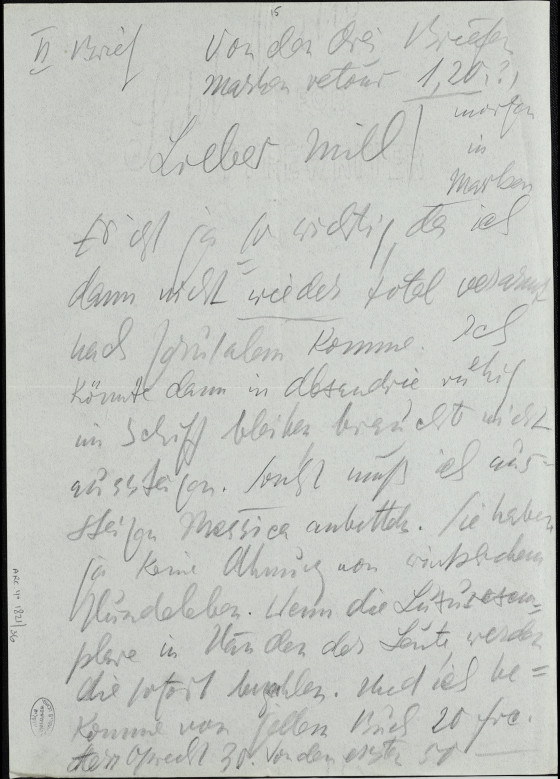 15
II Brief Von den drei Briefen
Marken retour 1,20 ?,
morgen
in
Marken
Lieber Mill
Es ist ja so wichtig, das ich
dann nicht wieder total verarmt
nach Jerusalem komme. Ich
könnte dann in ruhig
im Schiff bleiben brauchte nicht
aussteigen. Sonst muß ich aus-
steigen anbetteln. Sie haben
ja keine Ahnung von
Hundeleben. Wenn die Luxusexem=
plare in Händen der Leute, werden
die sofort bezahlen. Und ich be=
komme von jedem Buch 20 frc.
Oprecht 30. Von den ersten 50
ARC 4° 1821/36